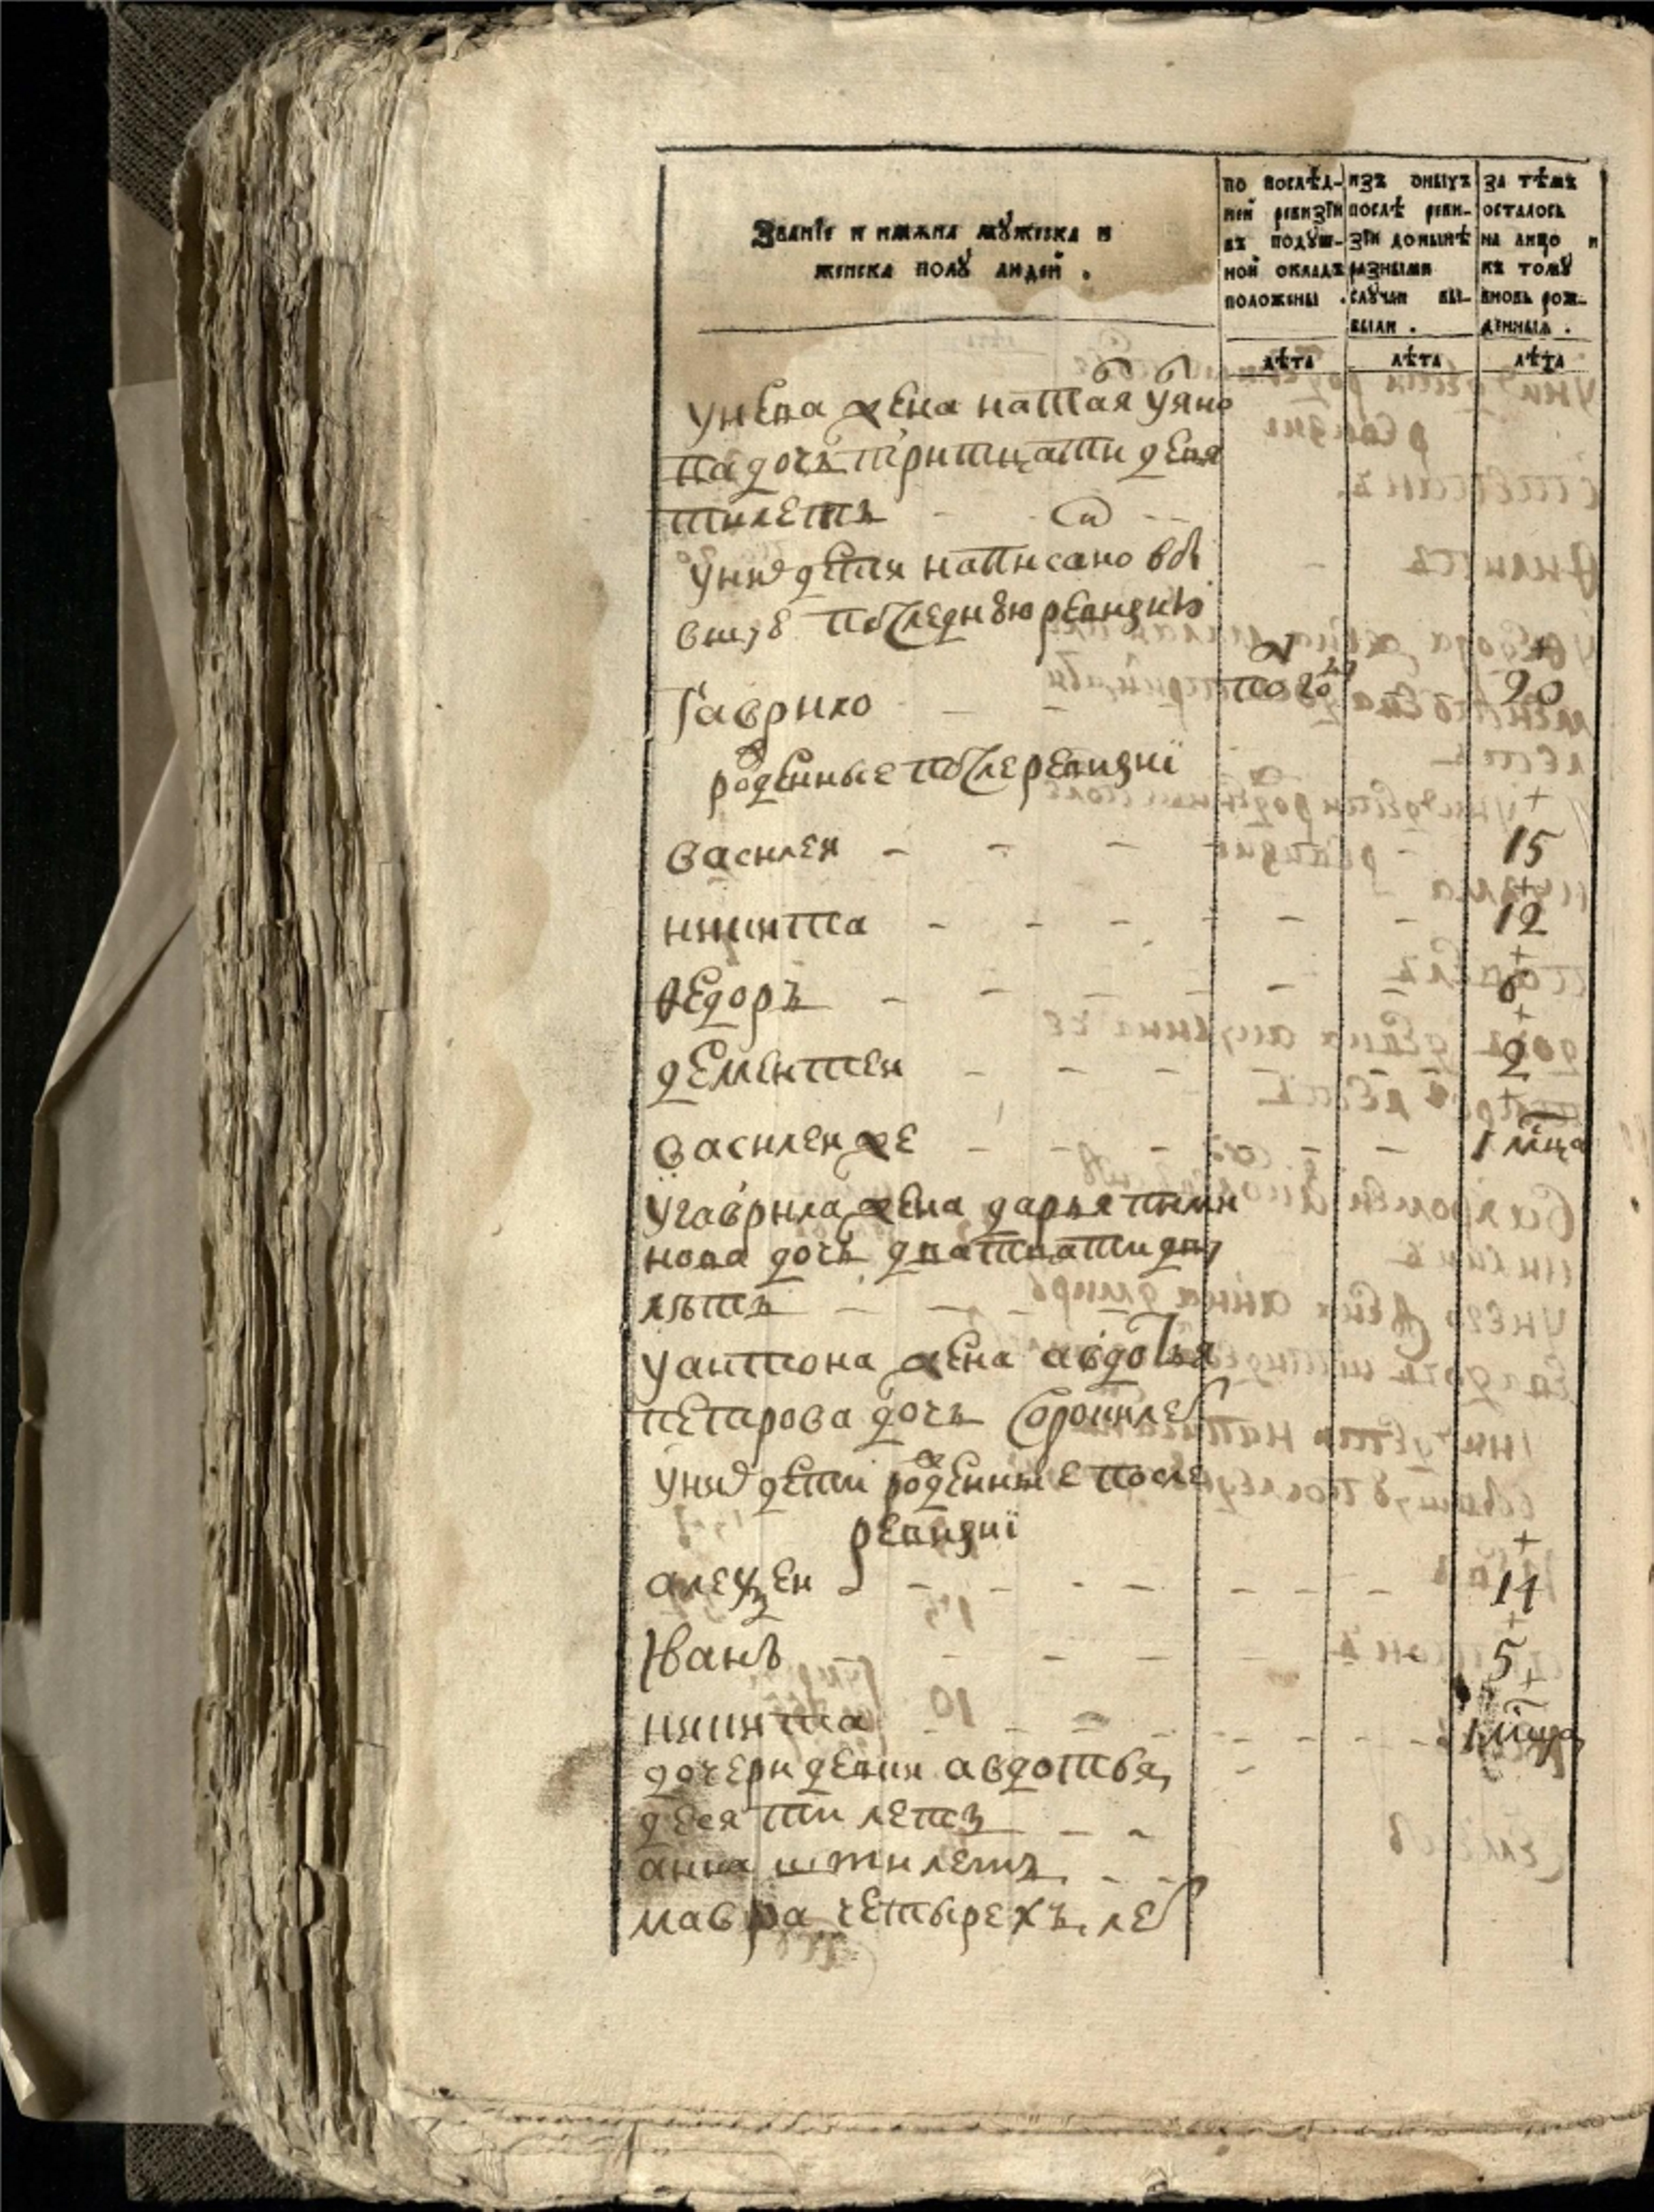 Званіе и имяна мȣжеска и
женска полȣ людей .
по послѣд-
ней ревизіи
въ подȣш-
ной окладъ
положены .
изъ оныхъ
послѣ реви-
зіи донынѣ
разными
слȣчаи вы-
были .
за тѣмъ
осталось
на лицо и
къ томȣ
вновь рож-
денныя .
лѣта
лѣта
лѣта
у жена
дочь тритцати девя
тилетъ
уних дети написано
последнюю ревизию
Гаврило 20
роженные после ревизиї
василеи 15
никита 12
ѳедоръ 6
дементеи 2
василеи же 1 мца
угаврила жена дарья
нова дочь дватцати
лѣтъ
уантона жена авдотья
петрова дочь сорокилет
уних дети роженные после
ревизиї
алеѯеи 14
Иванъ 5
никита 1 мца
дочери девки авдотья
десяти летъ
анна шти летъ
мавра четырехъ лет